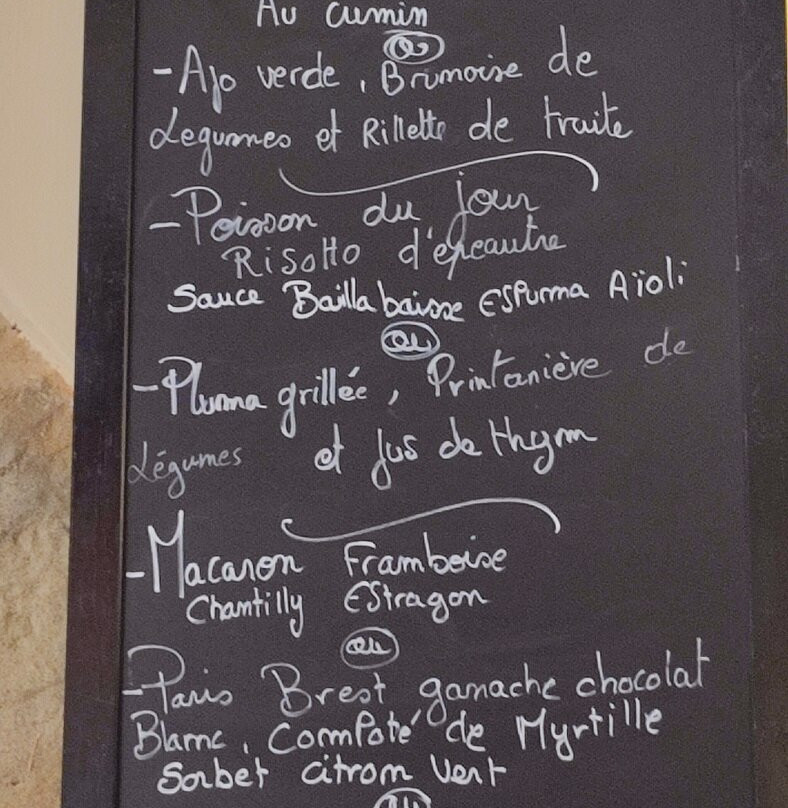 Au cumin
ou
- Ajo verde, Brunoise de
Legumes et Rillette de truite
- Poisson du jour
Risotto d'epeautre
Sauce Baillabaisse Espuma Aïoli
ou
- Pluma grillée, Printanière de
Légumes et Jus de thym
- Macaron Framboise
Chantilly Estragon
ou
- Paris Brest ganache chocolat
Blanc, Compoté de Myrtille
Sorbet citron vert
ou